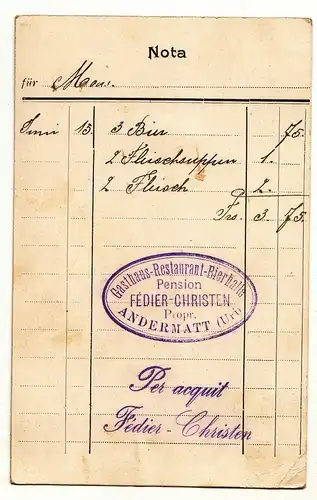 Nota
für Maas.
Juni 13. 3 Bier 75.
2 Fleischsuppen 1.
2 Fleisch 2.
Frs. 3. 75.
Gasthaus-Restaurant-Bierhalle
Pension
FÉDIER-CHRISTEN
Propr.
ANDERMATT (Uri)
Per acquit
Fédier-Christen